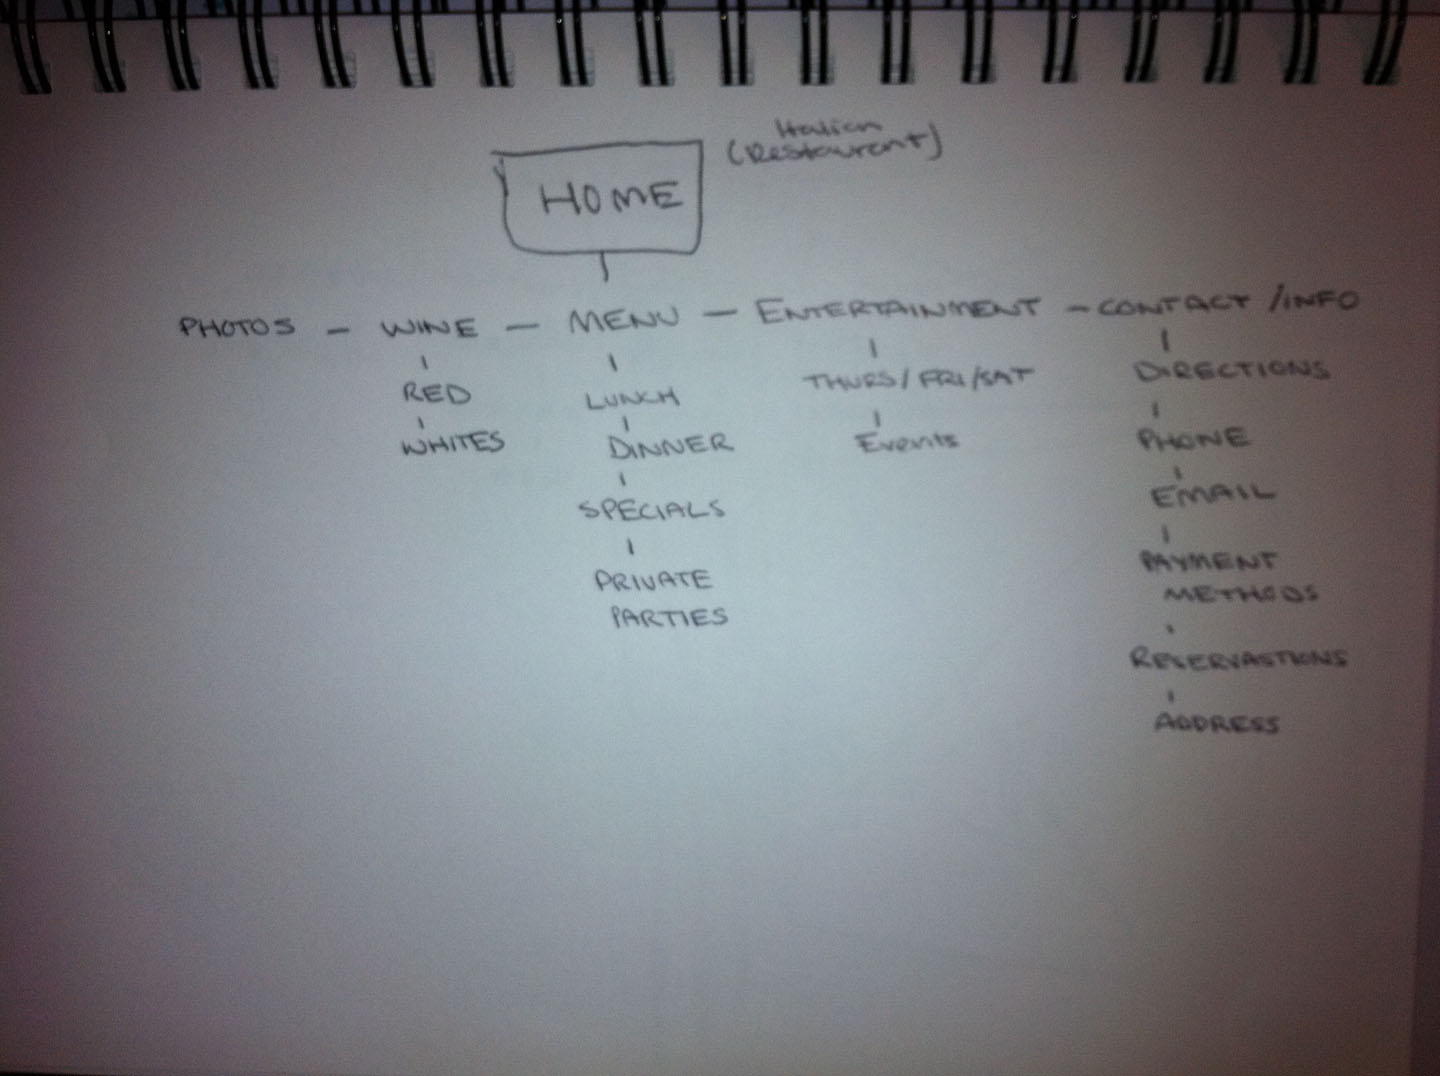 Italian
(Restaurant)
HOME
PHOTOS - WINE - MENU - ENTERTAINMENT - CONTACT /INFO
RED
WHITES
LUNCH
DINNER
SPECIALS
PRIVATE
PARTIES
THURS/FRI/SAT
Events
DIRECTIONS
PHONE
EMAIL
PAYMENT
METHODS
RESERVASTIONS
ADDRESS